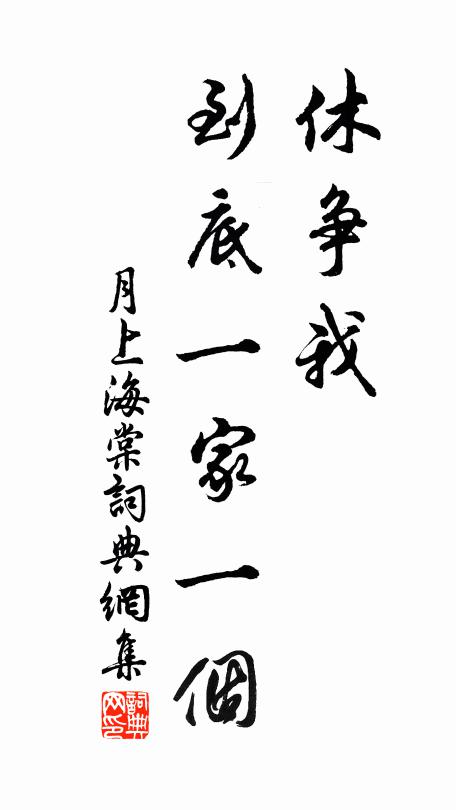 休争我
到底一家一個
月上海棠詞典網集
詞典
网印